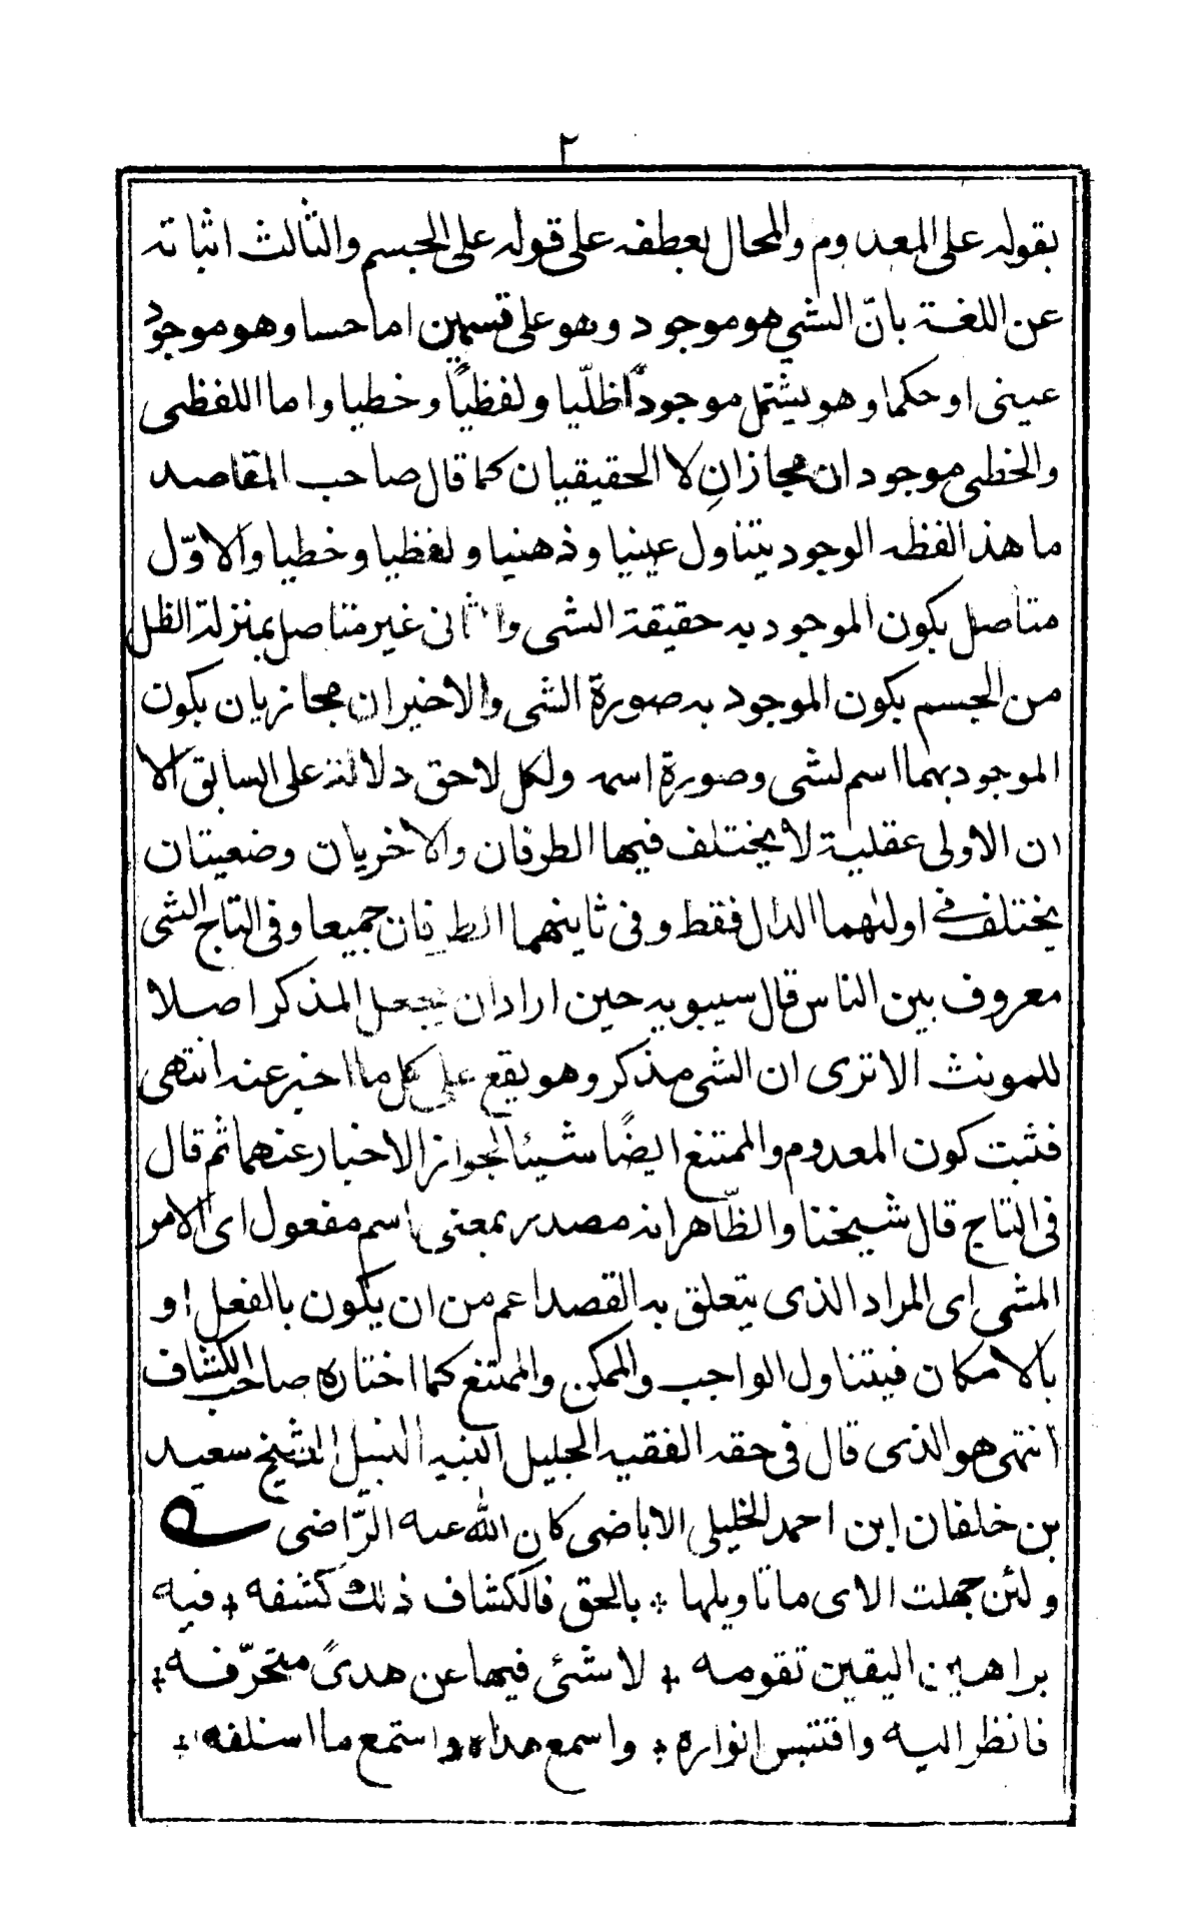 ٢
بقوله على المعدوم والمحال بعطفه على قوله على الجسم والثالث اثباته
عن اللغة بانّ الشي هو موجود وهو على قسمين اما حسا وهو موجود
عينى او حكما وهو يشتمل موجوداً ظلّيا ولفظيًا وخطيا واما اللفظى
والخطى موجودان مجازانِ لا الحقيقيان كما قال صاحب المقاصد
ما هذ الفظه الوجود يتناول عينيا وذهنيا ولفظيا وخطيا والاوّل
متاصل يكون الموجود به حقيقة الشى والثانى غير متاصل بمنزلة الظل
من الجسم يكون الموجود به صورة الشى والاخيران مجازيان يكون
الموجود بهما اسم لشى وصورة اسمه ولكل لاحق دلالة على السابق الا
ان الاولى عقلية لا يختلف فيها الطرفان والاخريان وضعيتان
يختلف فى اولٰهما الدال فقط وفى ثاينهما الطرفان جميعا وفى التاج الشى
معروف بين الناس قال سيبويه حين اراد ان يجعل المذكر اصلا
للمونث الا ترى ان الشى مذكر وهو يقع على كل ما اخبر عنه انتهى
فثبت كون المعدوم والممتنع ايضًا شيئا لجواز الاخبار عنهما ثم قال
فى التاج قال شيخنا والظّاهر انه مصدر بمعنى اسم مفعول اى الامر
المشى اى المراد الذى يتعلق به القصد اعم من ان يكون بالفعل او
بالامكان فيتناول الواجب والممكن والممتنع كما اختاره صاحب الكشاف
انتهى هو الذى قال فى حقه الفقيه الجليل النبيه النبيل الشيخ سعيد
بن خلفان ابن احمد الخليلى الاباضى كان الله عنه الرّاضى
ولئن جهلت الاى ما تاويلها ∴ بالحق فالكشاف ذلك كشفه ∴ فيه
براهين اليقين تقومه ∴ لا شئ فيها عن هدىً متحرّفه ∴
فانظر اليه واقتبس انواره ∴ واسمع هداه واستمع ما اسلفه ∴